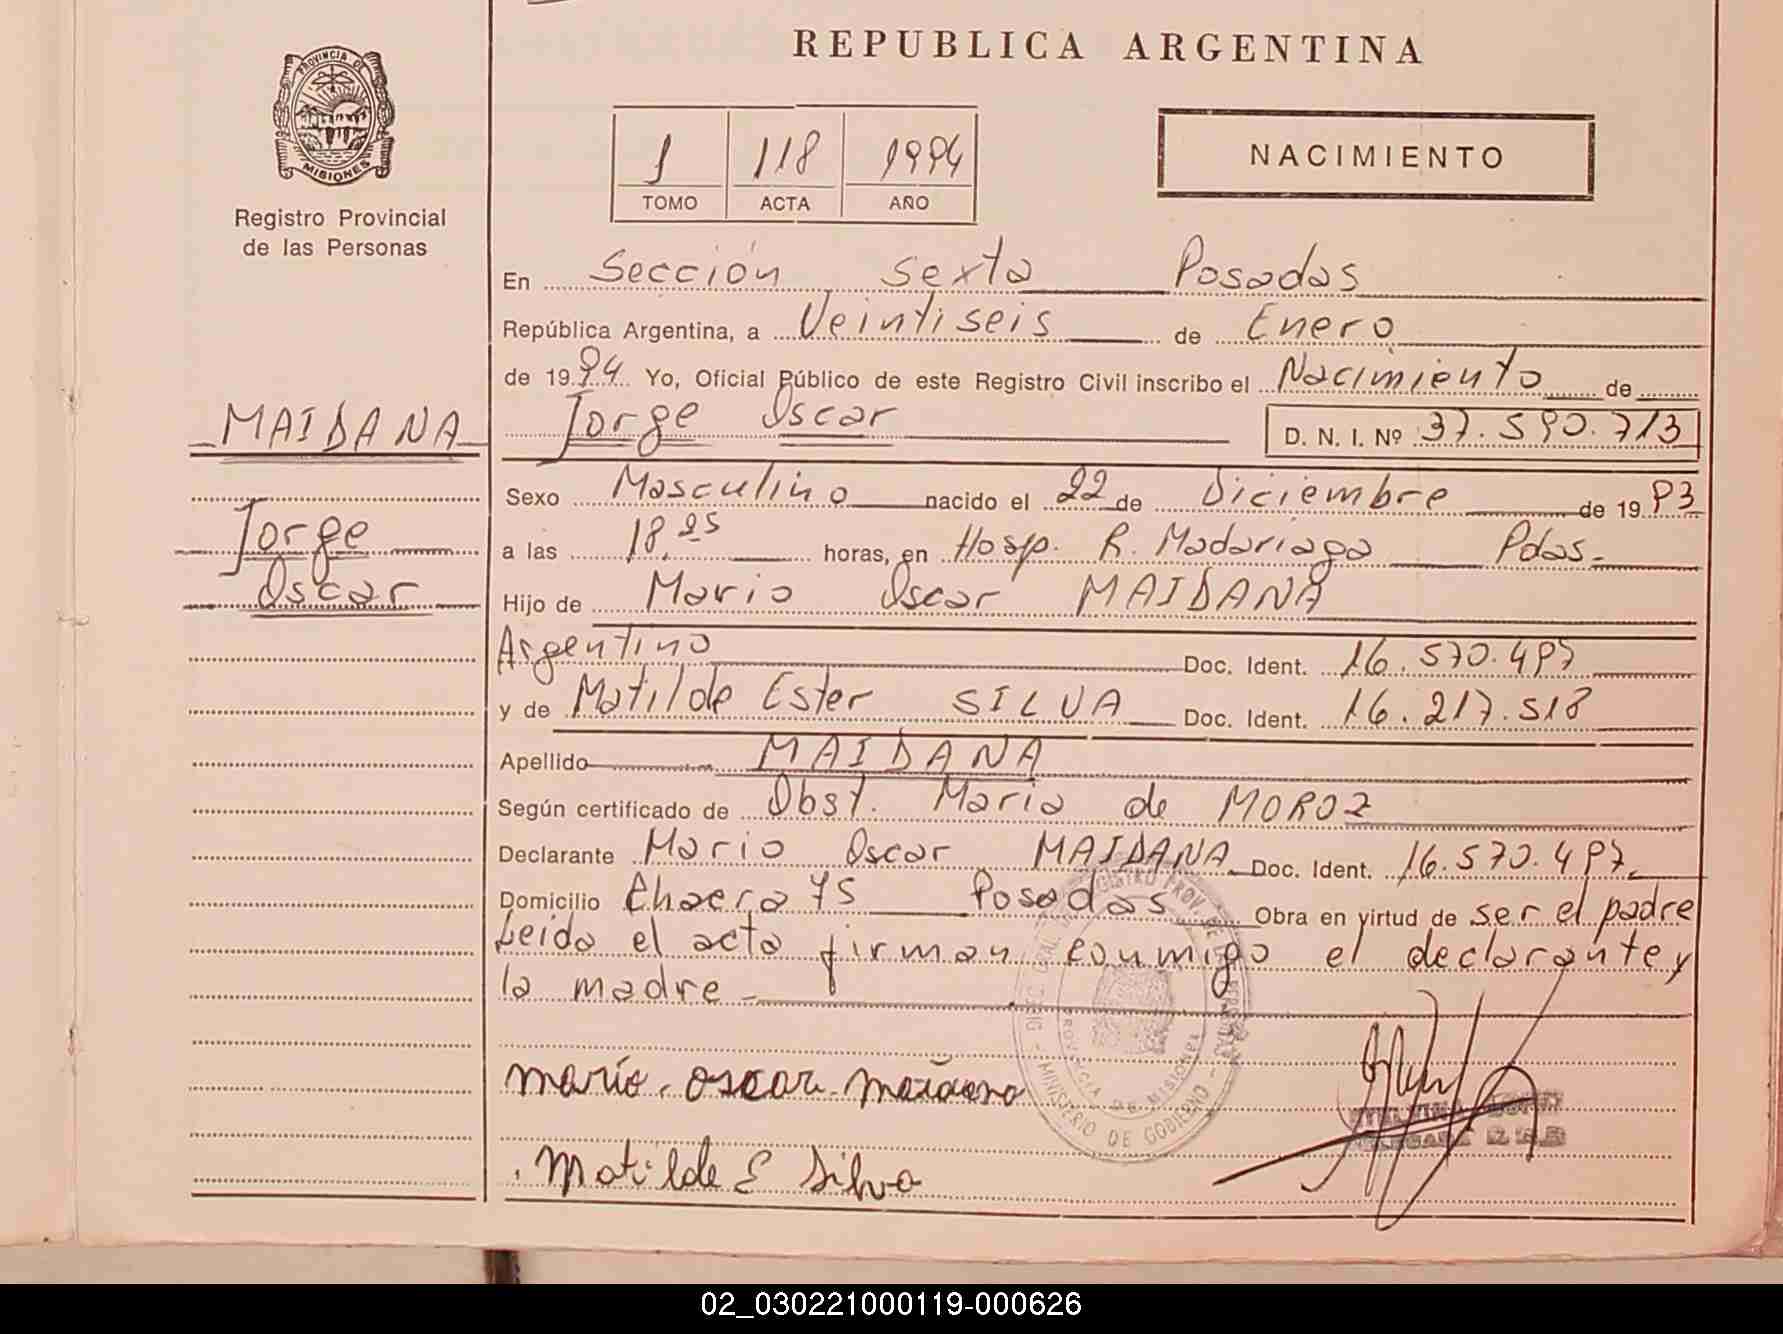 REPUBLICA ARGENTINA
PROVINCIA DE
MISIONES
Registro Provincial
de las Personas
1 118 1994
TOMO ACTA AÑO
NACIMIENTO
En Sección Sexta Posadas
República Argentina, a Veintiseis de Enero
de 1994 Yo, Oficial Público de este Registro Civil inscribo el Nacimiento de
Jorge Oscar D. N. I. Nº 37.590.713
MAIDANA
Jorge
Oscar
Sexo Masculino nacido el 22 de Diciembre de 1993
a las 18.25 horas, en Hosp. R. Madariaga Pdas.
Hijo de Mario Oscar MAIDANA
Argentino Doc. Ident. 16.570.497
y de Matilde Ester SILVA Doc. Ident. 16.217.518
Apellido MAIDANA
Según certificado de Obst. Maria de MOROZ
Declarante Mario Oscar MAIDANA Doc. Ident. 16.570.497
Domicilio Chacra 75 Posadas Obra en virtud de ser el padre
Leida el acta firman conmigo el declarante y
la madre
mario. oscar maidana
Matilde E Silva
MINISTERIO DE GOBIERNO
PROVINCIA DE MISIONES
02_030221000119-000626